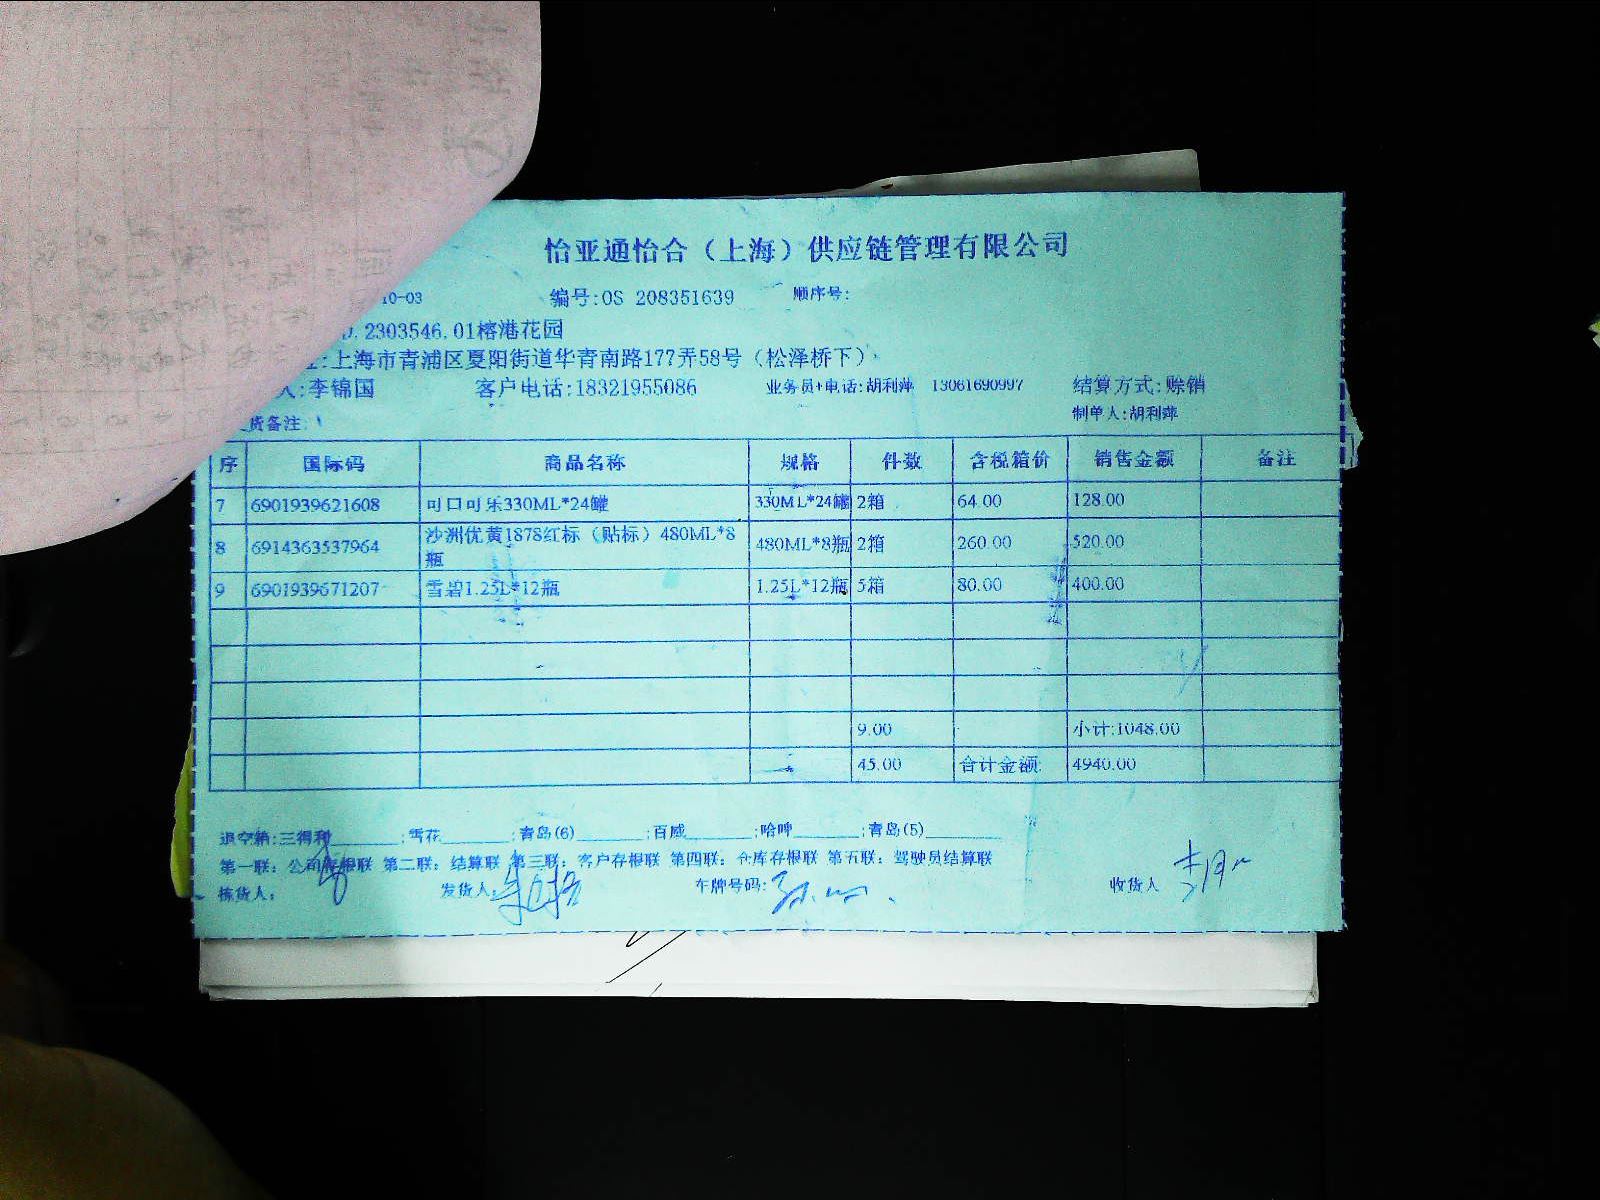 怡亚通怡合（上海）供应链管理有限公司
10-03 编号:OS 208351639 顺序号:
.2303546.01榕港花园
:上海市青浦区夏阳街道华青南路177弄58号（松泽桥下）
人:李锦国 客户电话:18321955086 业务员+电话:胡利萍 13061690997 结算方式:赊销
货备注: 制单人:胡利萍
序 国际码 商品名称 规格 件数 含税箱价 销售金额 备注
7 6901939621608 可口可乐330ML*24罐 330ML*24罐 2箱 64.00 128.00
8 6914363537964 沙洲优黄1878红标（贴标）480ML*8瓶 480ML*8瓶 2箱 260.00 520.00
9 6901939671207 雪碧1.25L*12瓶 1.25L*12瓶 5箱 80.00 400.00
9.00 小计:1048.00
45.00 合计金额: 4940.00
退空箱:三得利______;雪花______;青岛(6)______;百威______;哈啤______;青岛(5)______
第一联：公司存根联 第二联：结算联 第三联：客户存根联 第四联：仓库存根联 第五联：驾驶员结算联
拣货人: 发货人: 车牌号码: 收货人